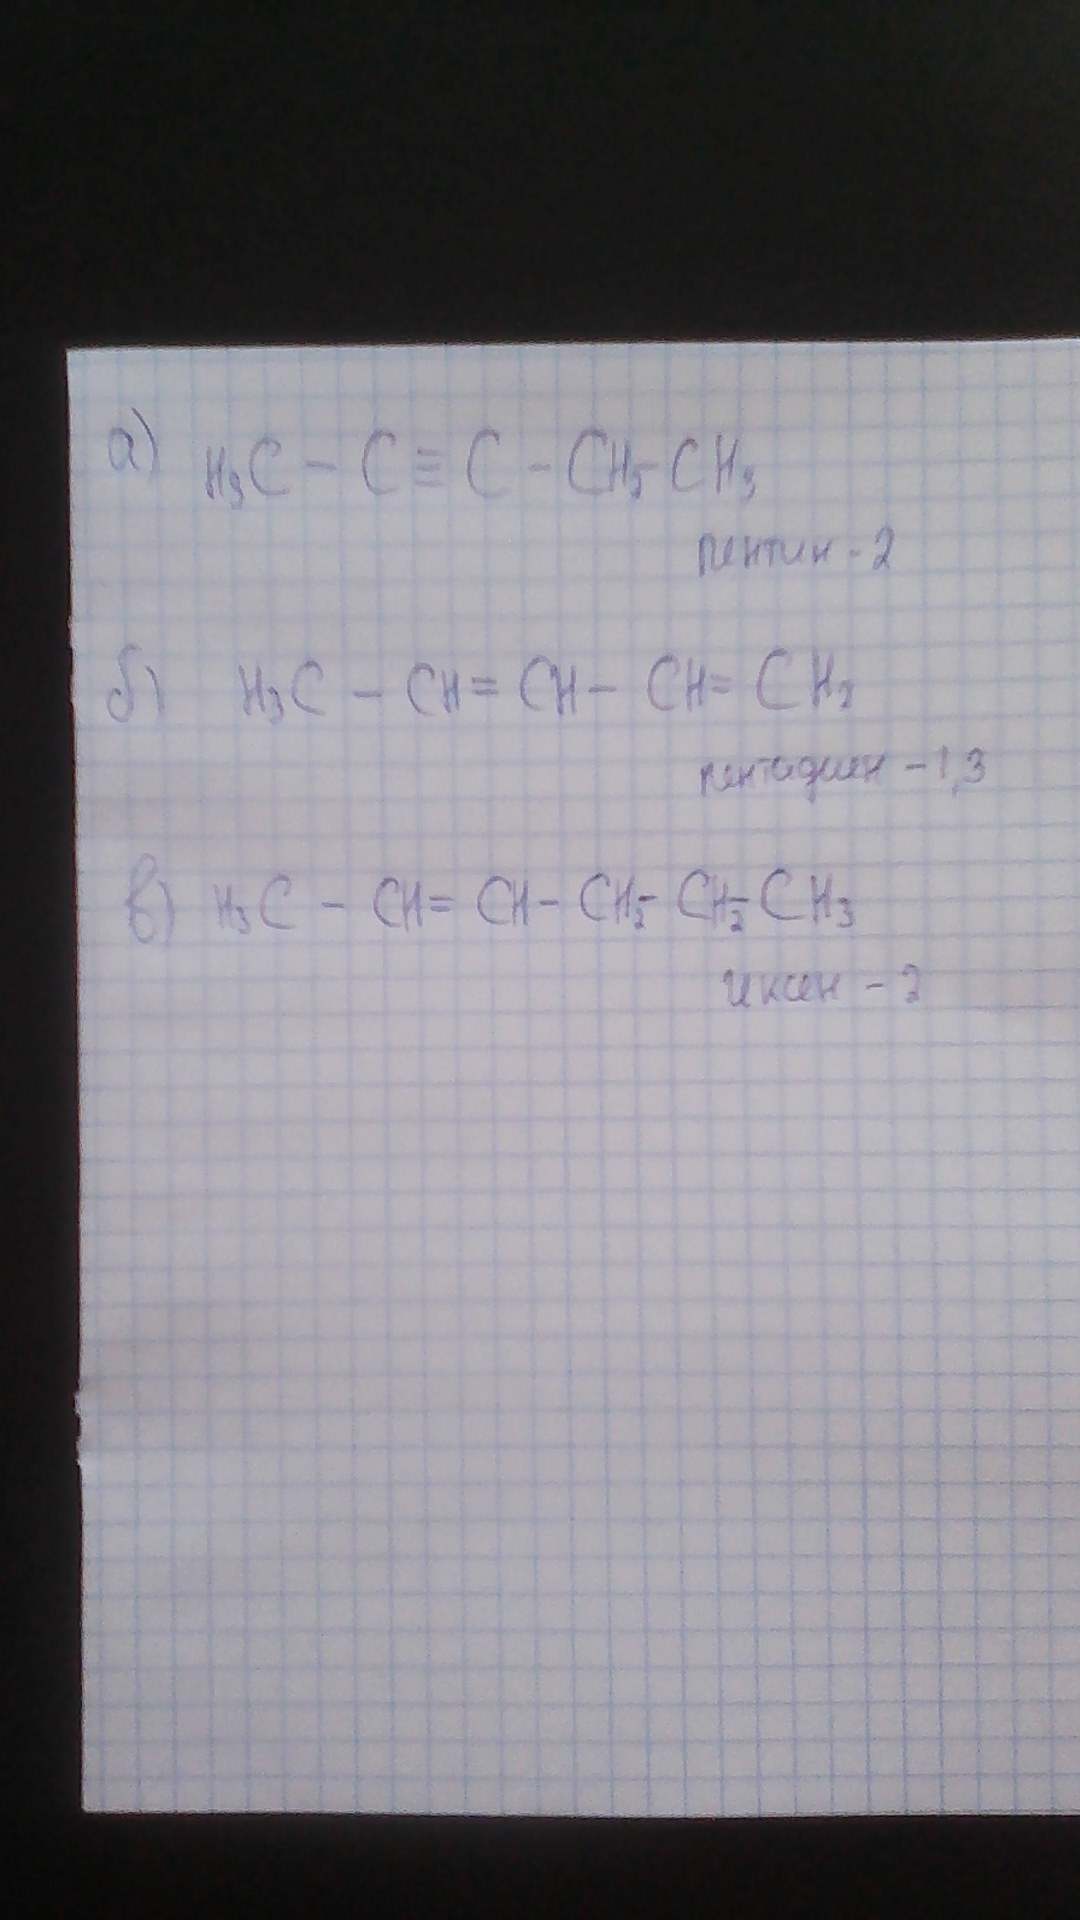 а) H₃C - C ≡ C - CH₂-CH₃
пентин - 2
б) H₃C - CH = CH - CH = CH₂
пентадиен - 1,3
в) H₃C - CH = CH - CH₂- CH₂- CH₃
гексен - 2